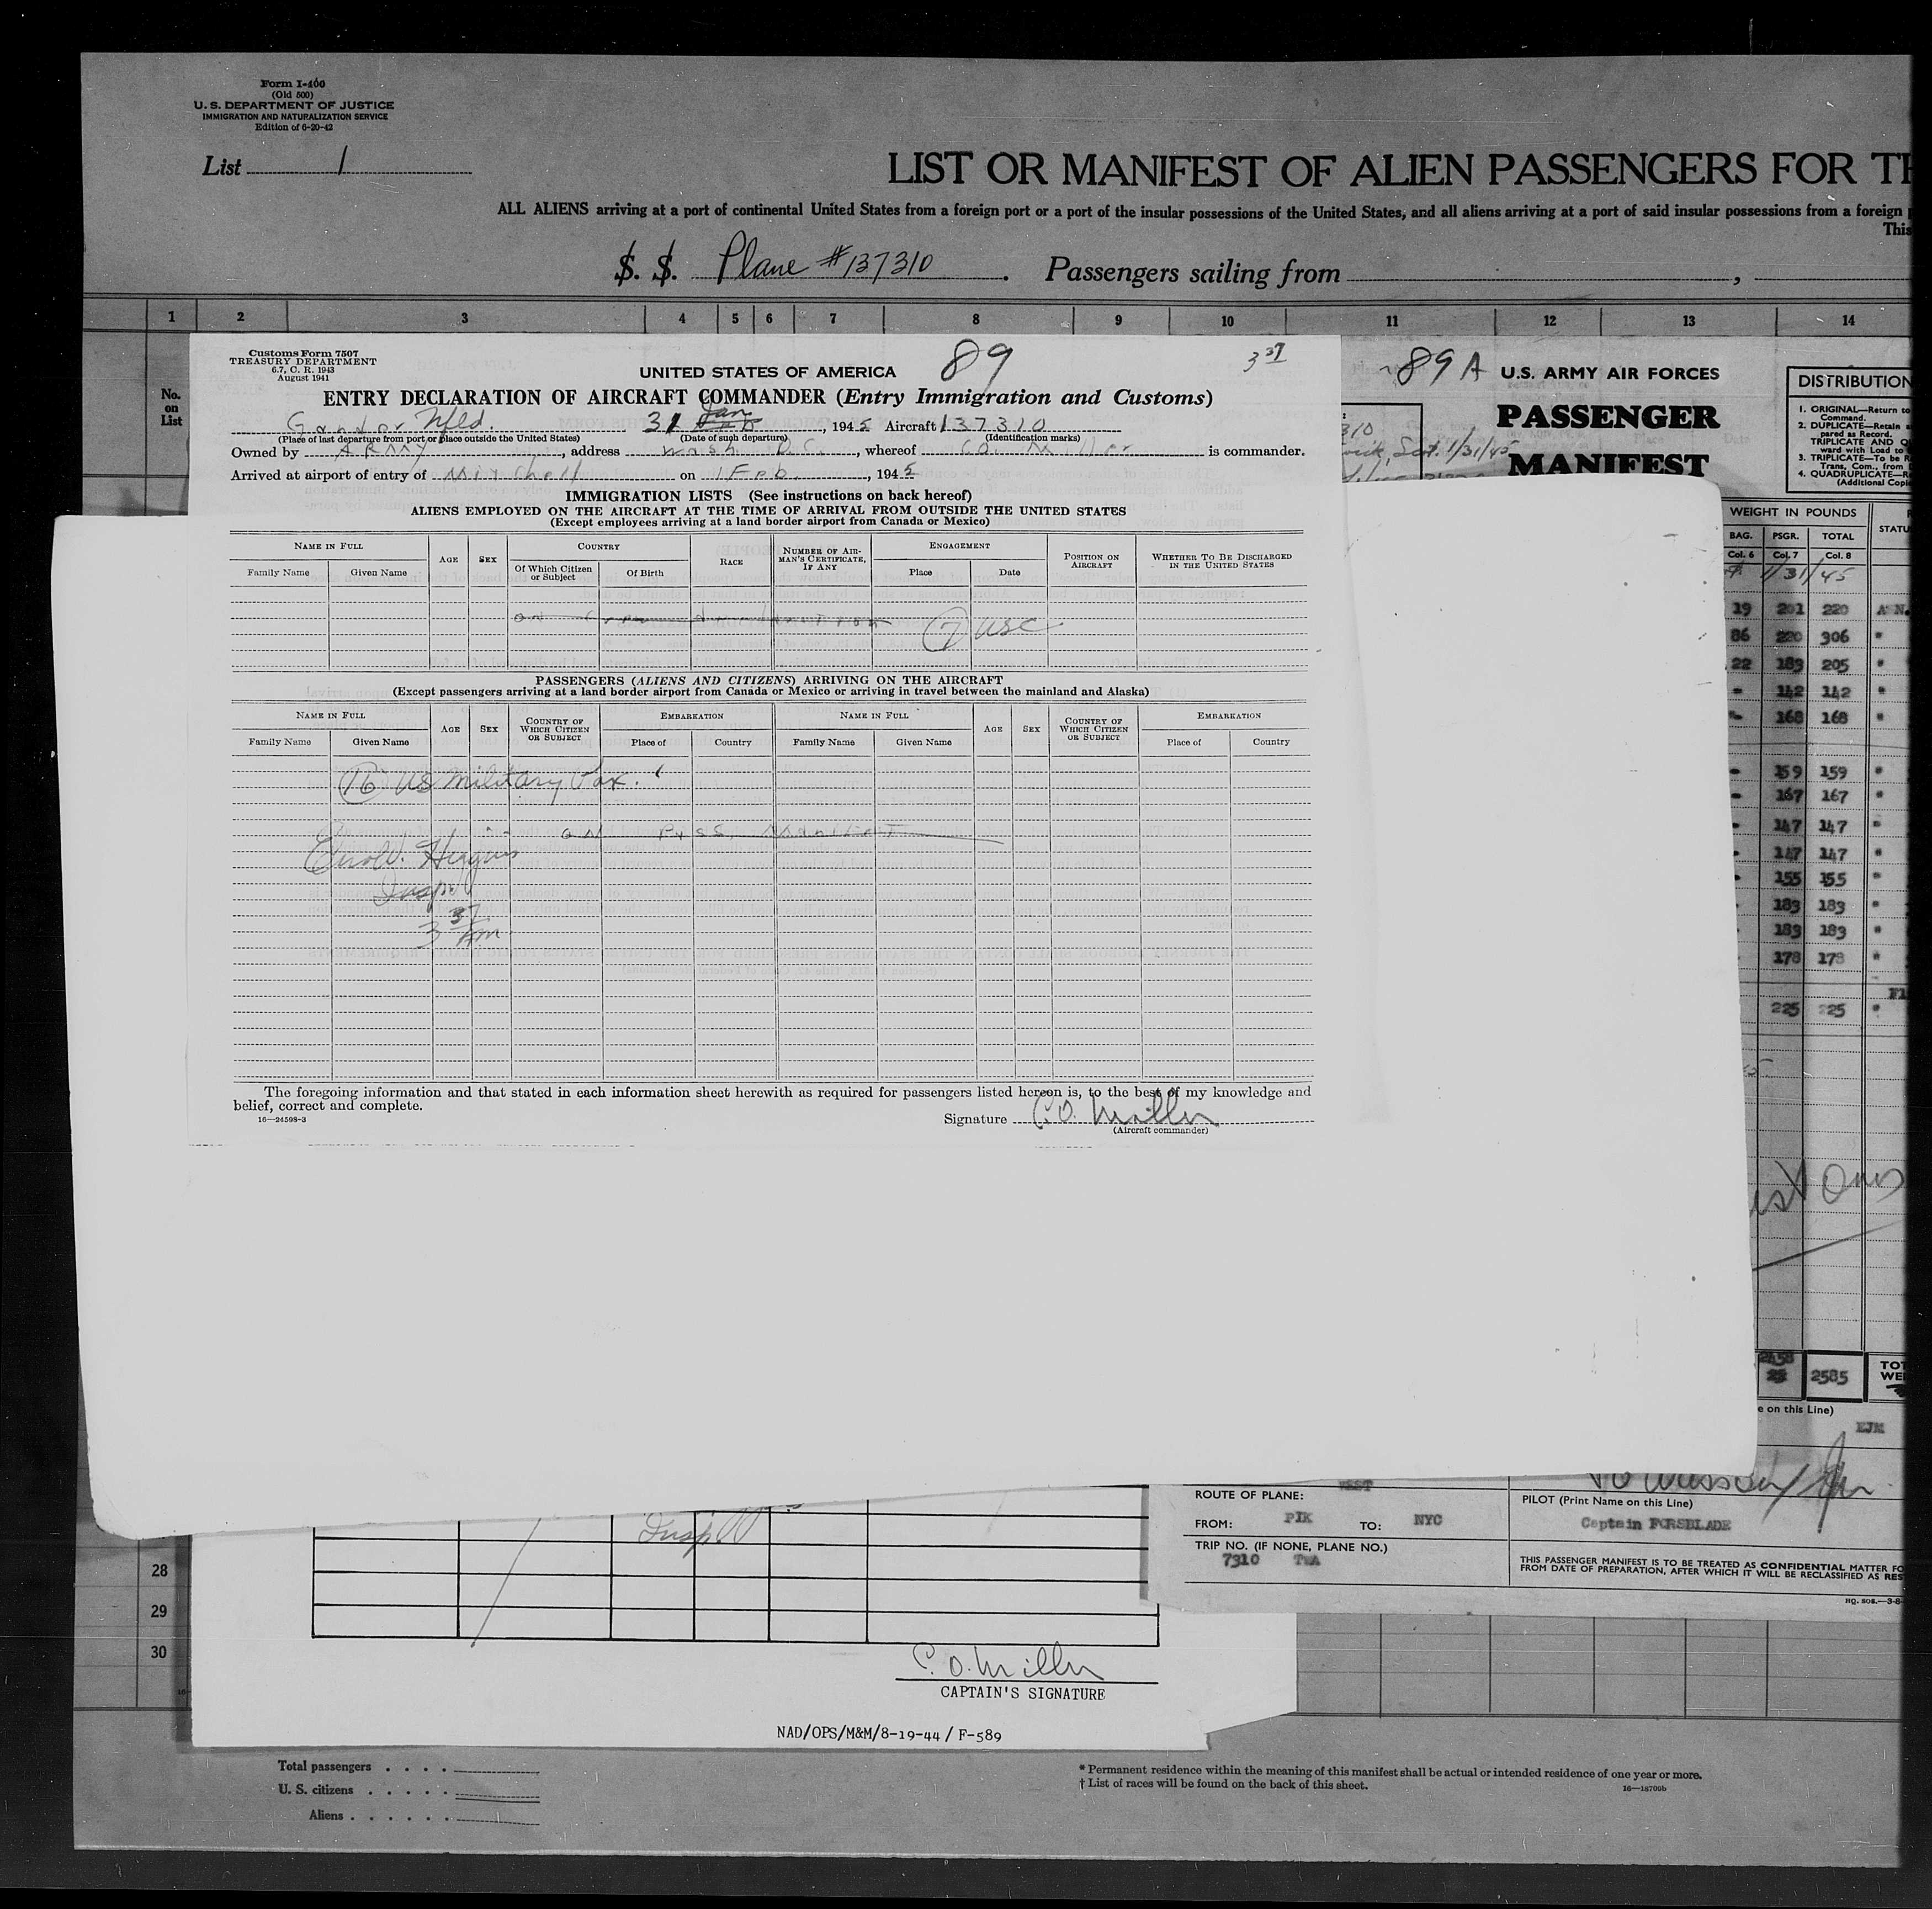 Form I-400
(Old 500)
U. S. DEPARTMENT OF JUSTICE
IMMIGRATION AND NATURALIZATION SERVICE
Edition of 6-20-42
List 1
LIST OR MANIFEST OF ALIEN PASSENGERS FOR TH
ALL ALIENS arriving at a port of continental United States from a foreign port or a port of the insular possessions of the United States, and all aliens arriving at a port of said insular possessions from a foreign
This
S. S. Plane #137310. Passengers sailing from ,
1 2 3 4 5 6 7 8 9 10 11 12 13 14
No. on List
Customs Form 7507
TREASURY DEPARTMENT
6.7, C. R. 1943
August 1941
89
3 37
UNITED STATES OF AMERICA
ENTRY DECLARATION OF AIRCRAFT COMMANDER (Entry Immigration and Customs)
Gandor Nfld. 31 Jan, 1945 Aircraft 137310
(Place of last departure from port or place outside the United States) (Date of such departure) (Identification marks)
Owned by ARMY, address Wash D.C., whereof CO. Miller is commander.
Arrived at airport of entry of Mitchell on 1 Feb., 1945
IMMIGRATION LISTS (See instructions on back hereof)
ALIENS EMPLOYED ON THE AIRCRAFT AT THE TIME OF ARRIVAL FROM OUTSIDE THE UNITED STATES
(Except employees arriving at a land border airport from Canada or Mexico)
NAME IN FULL AGE SEX COUNTRY RACE NUMBER OF AIRMAN'S CERTIFICATE, IF ANY ENGAGEMENT POSITION ON AIRCRAFT WHETHER TO BE DISCHARGED IN THE UNITED STATES
Family Name Given Name Of Which Citizen or Subject Of Birth Place Date
on Crew
7 USC
PASSENGERS (ALIENS AND CITIZENS) ARRIVING ON THE AIRCRAFT
(Except passengers arriving at a land border airport from Canada or Mexico or arriving in travel between the mainland and Alaska)
NAME IN FULL AGE SEX COUNTRY OF WHICH CITIZEN OR SUBJECT EMBARKATION NAME IN FULL AGE SEX COUNTRY OF WHICH CITIZEN OR SUBJECT EMBARKATION
Family Name Given Name Place of Country Family Name Given Name Place of Country
16 US Military Pax.
ON Pass. Manifest
Higgins
Insp
3 37 AM
The foregoing information and that stated in each information sheet herewith as required for passengers listed hereon is, to the best of my knowledge and
belief, correct and complete.
16—24598-3
Signature C.O. Miller
(Aircraft commander)
89 A
U.S. ARMY AIR FORCES
PASSENGER
MANIFEST
DISTRIBUTION
1. ORIGINAL—Return to
Command.
2. DUPLICATE—Retain
pared as Record.
TRIPLICATE AND Q
ward with Load to
3. TRIPLICATE—To be
Trans. Com., from
4. QUADRUPLICATE—
(Additional Copi
310
wick, Scot. 1/31/45
WEIGHT IN POUNDS
BAG. PSGR. TOTAL STATU
Col. 6 Col. 7 Col. 8
1/31/45
19 201 220 ASN.
86 220 306 "
22 183 205 "
- 142 142 "
- 168 168 "
- 159 159 "
- 167 167 "
- 147 147 "
- 147 147 "
155 155 "
183 183 "
183 183 "
178 178 "
225 225 "
2458
2585
TOT
WEI
e on this Line)
EJM
WEST
ROUTE OF PLANE:
FROM: PIK TO: NYC
TRIP NO. (IF NONE, PLANE NO.)
7310 TWA
PILOT (Print Name on this Line)
Captain FORSBLADE
THIS PASSENGER MANIFEST IS TO BE TREATED AS CONFIDENTIAL MATTER FO
FROM DATE OF PREPARATION, AFTER WHICH IT WILL BE RECLASSIFIED AS RES
HQ. SOS.—3-8-
Insp
28
29
30
C.O. Miller
CAPTAIN'S SIGNATURE
NAD/OPS/M&M/8-19-44 / F-589
Total passengers
U. S. citizens
Aliens
* Permanent residence within the meaning of this manifest shall be actual or intended residence of one year or more.
† List of races will be found on the back of this sheet.
16—18700b